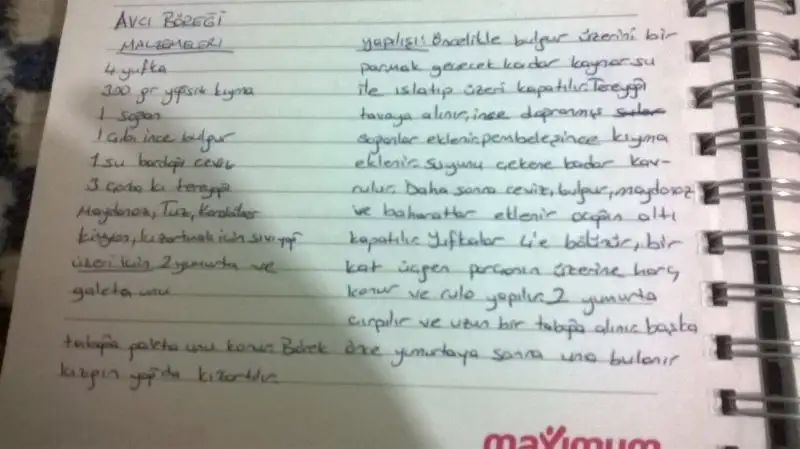 AVCI BÖREĞİ
MALZEMELERİ
4 yufka
300 gr yağsız kıyma
1 soğan
1 ince bulgur
1 su bardağı ceviz
3 tereyağı
Maydonoz, Tuz, Karabiber
kimyon, kızartmak için sıvı yağ
üzeri için 2 yumurta ve
galeta unu
yapılışı: Öncelikle bulgur üzerini bir
parmak geçecek kadar kaynar su
ile ıslatıp üzeri kapatılır. Tereyağı
tavaya alınır, ince doğranmış
soğanlar eklenir. pembeleşince kıyma
eklenir. Suyunu çekene kadar kav-
rulur. Daha sonra ceviz, bulgur, maydonoz
ve baharatlar eklenir ocağın altı
kapatılır. Yufkalar 4'e bölünür, bir
kat üçgen parçanın üzerine harç
konur ve rulo yapılır. 2 yumurta
çırpılır ve uzun bir tabağa alınır. başka
tabağa galeta unu konur. Börek önce yumurtaya sonra una bulanır
kızgın yağda kızartılır.
maximum